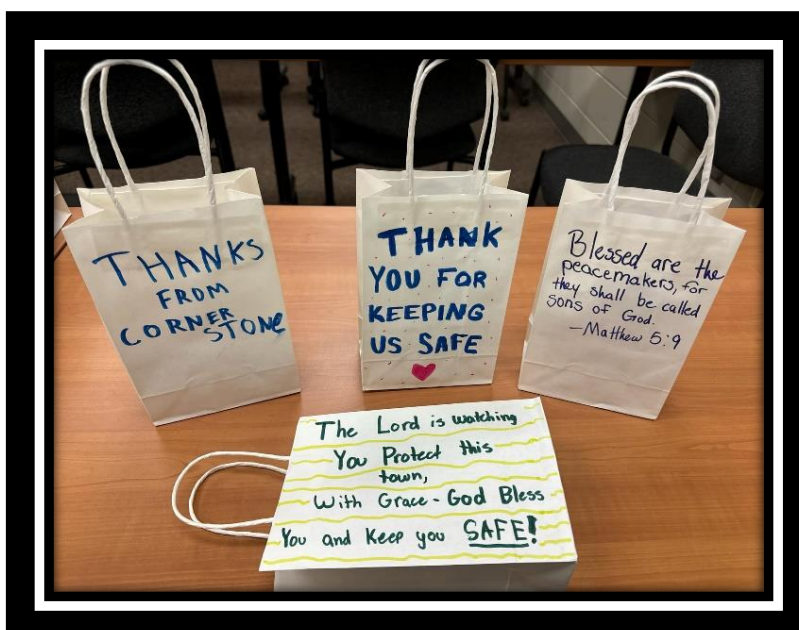 THANKS
FROM
CORNER
STONE
THANK
YOU FOR
KEEPING
US SAFE
Blessed are the
peacemakers, for
they shall be called
sons of God.
-Matthew 5:9
The Lord is watching
You Protect this
town,
With Grace - God Bless
You and Keep you SAFE!